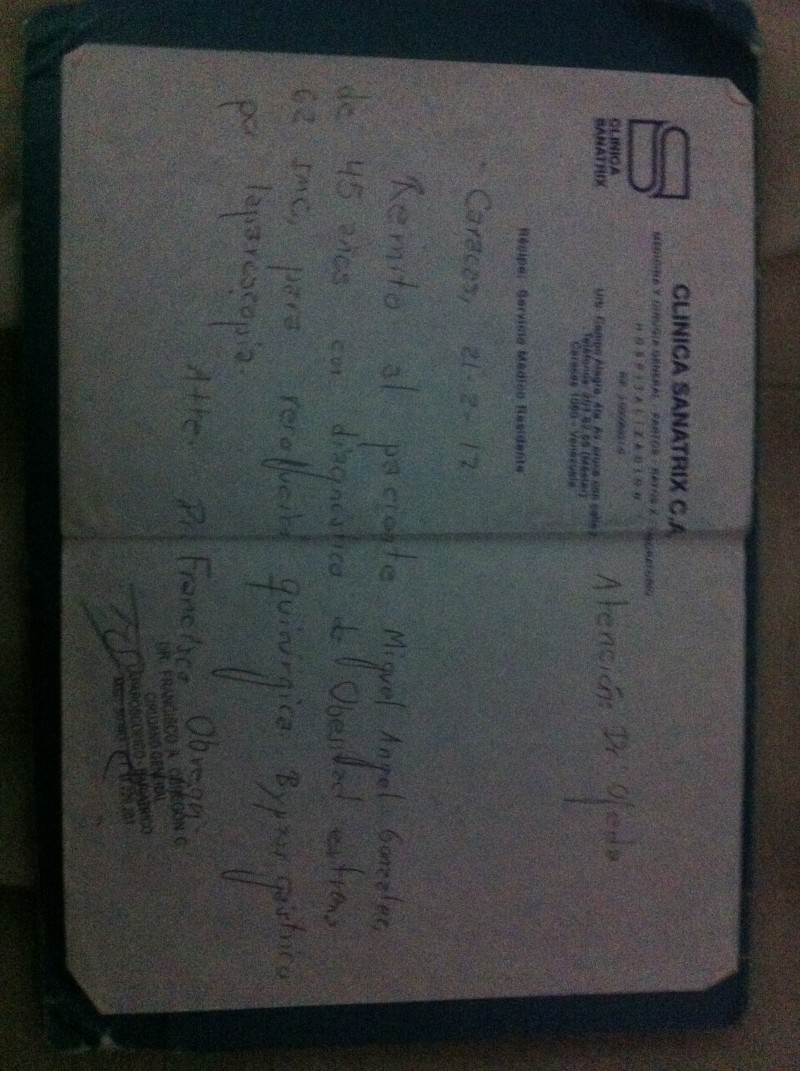 CLINICA SANATRIX
CLINICA SANATRIX C.A
MEDICINA Y CIRUGIA GENERAL - PARTOS - RAYOS X -
HOSPITALIZACION
Urb. Campo Alegre, 4ta. Av. cruce con calle
Caracas 1060 - Venezuela
Récipe: Servicio Médico Residente
Atención: Dr Ojeda
Caracas, 21-2-12
Remito al paciente Miguel Angel Gonzalez,
de 45 años con diagnóstico de Obesidad extrema
62 IMC, para quirúrgica. Bypass gástrico
por laparoscopia.
Atte. Dr Francisco Obregón.
DR. FRANCISCO A. OBREGON C.
CIRUJANO GENERAL